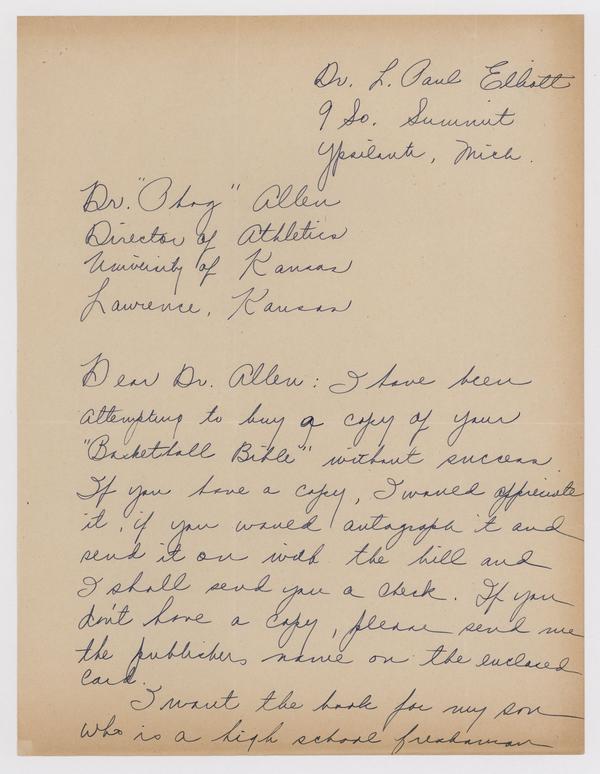 Dr. L. Paul Elliott
9 So. Summit
Ypsilanti, Mich.
Dr. "Phog" Allen
Director of Athletics
University of Kansas
Lawrence, Kansas
Dear Dr. Allen: I have been
attempting to buy a copy of your
"Basketball Bible" without success.
If you have a copy, I would appreciate
it, if you would autograph it and
send it on with the bill and
I shall send you a check. If you
don't have a copy, please send me
the publishers name on the enclosed
card.
I want the book for my son
who is a high school freshman